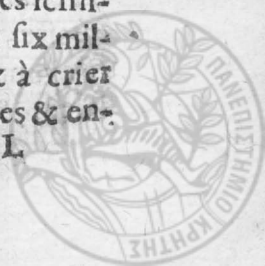 six mil-
à crier
es & en-
L
ΠΑΝΕΠΙΣΤΗΜΙΟ ΚΡΗΤΗΣ